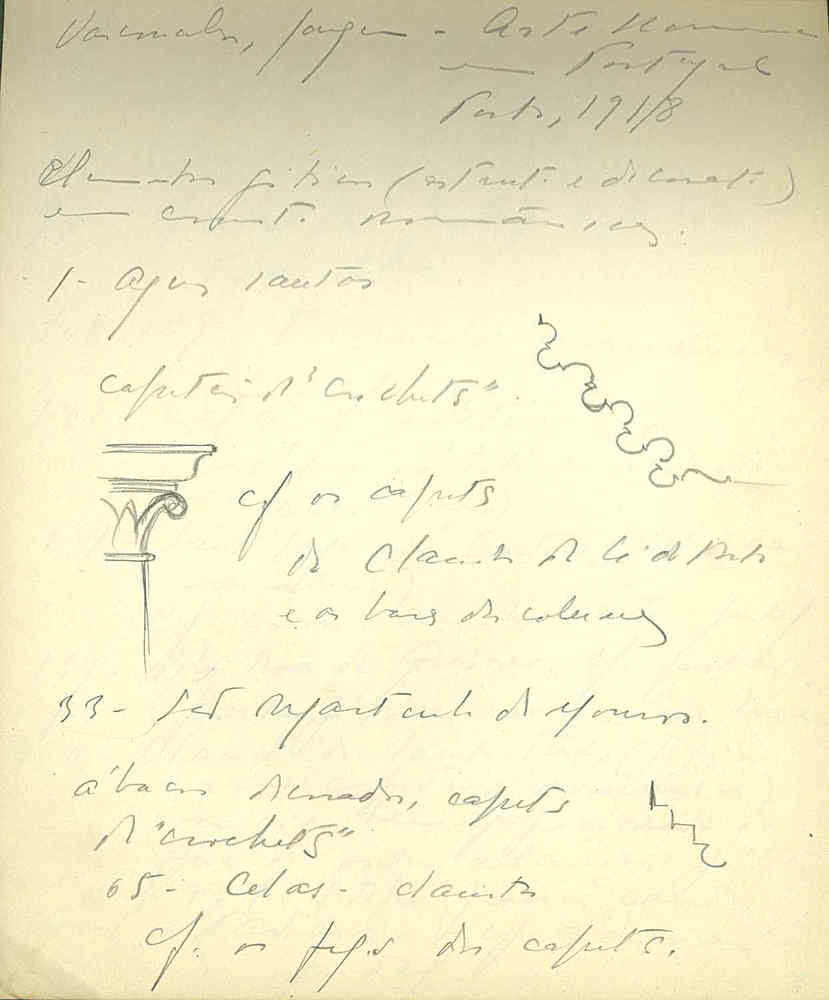 Vasconcelos, Joaquim - Arte Românica
em Portugal
Porto, 1918
Elementos góticos (estrut. e decorat.)
em const. românicas.
1- Aguas Santas
capiteis de "crochets".
cf os capitéis
do Claustro da Sé do Porto
e as bases das colunas
33-
ábacos denteados, capitéis
de "crochets"
65- Celas - claustro
cf. os figs dos capitéis.